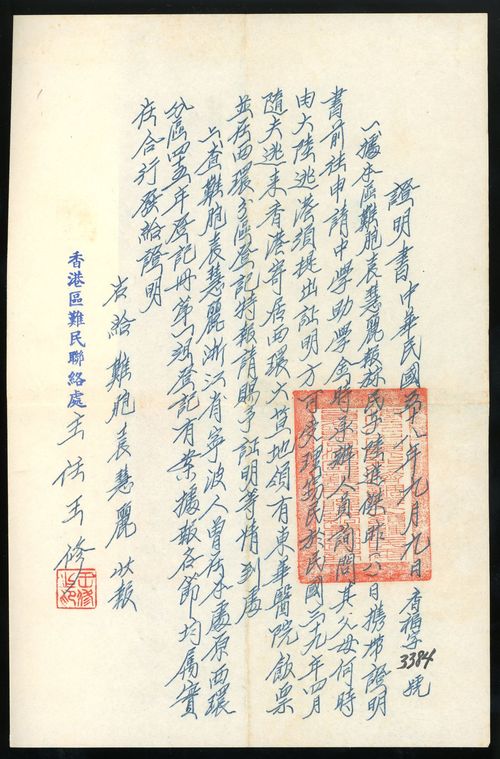 證明書 中華民國五八年九月九日 香福字3384號
一、據本區難胞袁慧麗報稱民子陸道傑昨(八)日携帶證明
書前往申請中學助學金時承辦人員詢問其父母何時
由大陸逃港須提出証明方可受理竊民於民國三十九年四月
隨夫逃來香港寄居西環大草地領有東華醫院飯票
並在西環分區登記特報請賜予証明等情到處
二、查難胞袁慧麗浙江省寧波人曾在本處原西環
分區四五年登記冊第 登記有案據報各節均屬實
在合行發給證明
右給難胞袁慧麗收執
香港區難民聯絡處 主任王修
王修之印